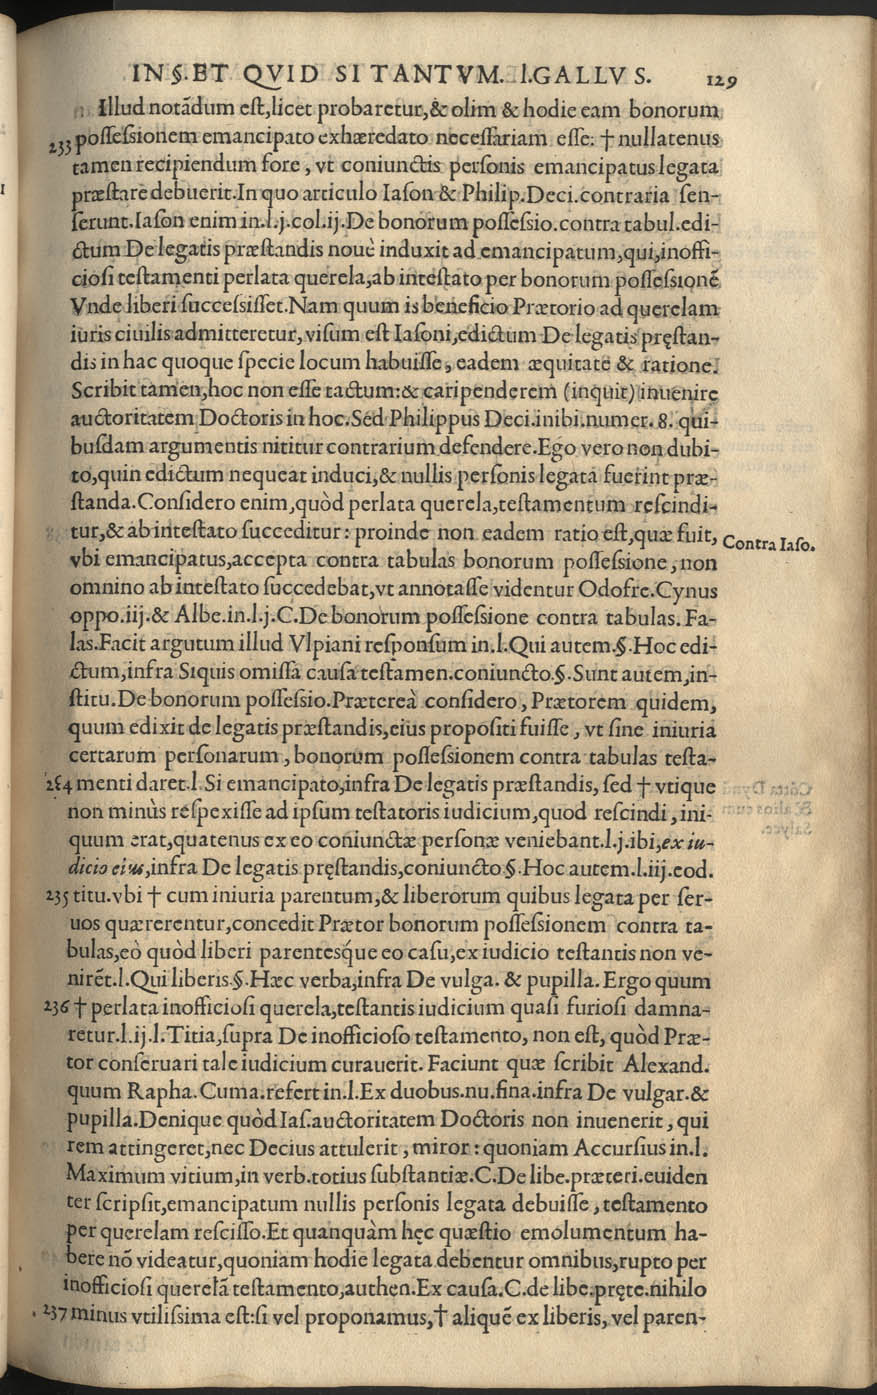 IN §. ET QVID SI TANTVM. l. GALLVS. 129
Illud notãdum est, licet probaretur, & olim & hodie eam bonorum
233 possessionem emancipato exhæredato necessariam esse: † nullatenus
tamen recipiendum fore, vt coniunctis personis emancipatus legata
præstare debuerit. In quo articulo Iason & Philip. Deci. contraria sen-
serunt. Iason enim in. l. j. col. ij. De bonorum possessio. contra tabul. edi-
ctum De legatis præstandis nouè induxit ad emancipatum, qui, inoffi-
ciosi testamenti perlata querela, ab intestato per bonorum possessionẽ
Vnde liberi successisset. Nam quum is beneficio Prætorio ad querelam
iuris ciuilis admitteretur, visum est Iasoni, edictum De legatis pręstan-
dis in hac quoque specie locum habuisse, eadem æquitate & ratione.
Scribit tamen, hoc non esse tactum: & caripenderem (inquit) inuenire
auctoritatem Doctoris in hoc. Sed Philippus Deci. inibi. numer. 8. qui-
busdam argumentis nititur contrarium defendere. Ego vero non dubi-
to, quin edictum nequeat induci, & nullis personis legata fuerint præ-
standa. Considero enim, quòd perlata querela, testamentum rescindi-
tur, & ab intestato succeditur: proinde non eadem ratio est, quæ fuit,
Contra Iaso.
vbi emancipatus, accepta contra tabulas bonorum possessione, non
omnino ab intestato succedebat, vt annotasse videntur Odofre. Cynus
oppo. iij. & Albe. in. l. j. C. De bonorum possessione contra tabulas. Fa-
las. Facit argutum illud Vlpiani responsum in. l. Qui autem. §. Hoc edi-
ctum, infra Siquis omissa causa testamen. coniuncto. §. Sunt autem, in-
stitu. De bonorum possessio. Prætereà considero, Prætorem quidem,
quum edixit de legatis præstandis, eius propositi fuisse, vt sine iniuria
certarum personarum, bonorum possessionem contra tabulas testa-
234 menti daret. l. Si emancipato, infra De legatis præstandis, sed † vtique
non minùs respexisse ad ipsum testatoris iudicium, quod rescindi, ini-
quum erat, quatenus ex eo coniunctæ personæ veniebant. l. j. ibi, ex iu-
dicio eius, infra De legatis pręstandis, coniuncto §. Hoc autem. l. iij. eod.
235 titu. vbi † cum iniuria parentum, & liberorum quibus legata per ser-
uos quærerentur, concedit Prætor bonorum possessionem contra ta-
bulas, eò quòd liberi parentesq́ue eo casu, ex iudicio testantis non ve-
nirẽt. l. Qui liberis. §. Hæc verba, infra De vulga. & pupilla. Ergo quum
236 † perlata inofficiosi querela, testantis iudicium quasi furiosi damna-
retur. l. ij. l. Titia, supra De inofficioso testamento, non est, quòd Præ-
tor conseruari tale iudicium curauerit. Faciunt quæ scribit Alexand.
quum Rapha. Cuma. refert in. l. Ex duobus. nu. fina. infra De vulgar. &
pupilla. Denique quòd Ias. auctoritatem Doctoris non inuenerit, qui
rem attingeret, nec Decius attulerit, miror: quoniam Accursius in. l.
Maximum vitium, in verb. totius substantiæ. C. De libe. præteri. euiden
ter scripsit, emancipatum nullis personis legata debuisse, testamento
per querelam rescisso. Et quanquàm hęc quæstio emolumentum ha-
bere nõ videatur, quoniam hodie legata debentur omnibus, rupto per
inofficiosi querelã testamento, authen. Ex causa. C. de libe. pręte. nihilo
237 minus vtilissima est: si vel proponamus, † aliquẽ ex liberis, vel paren-